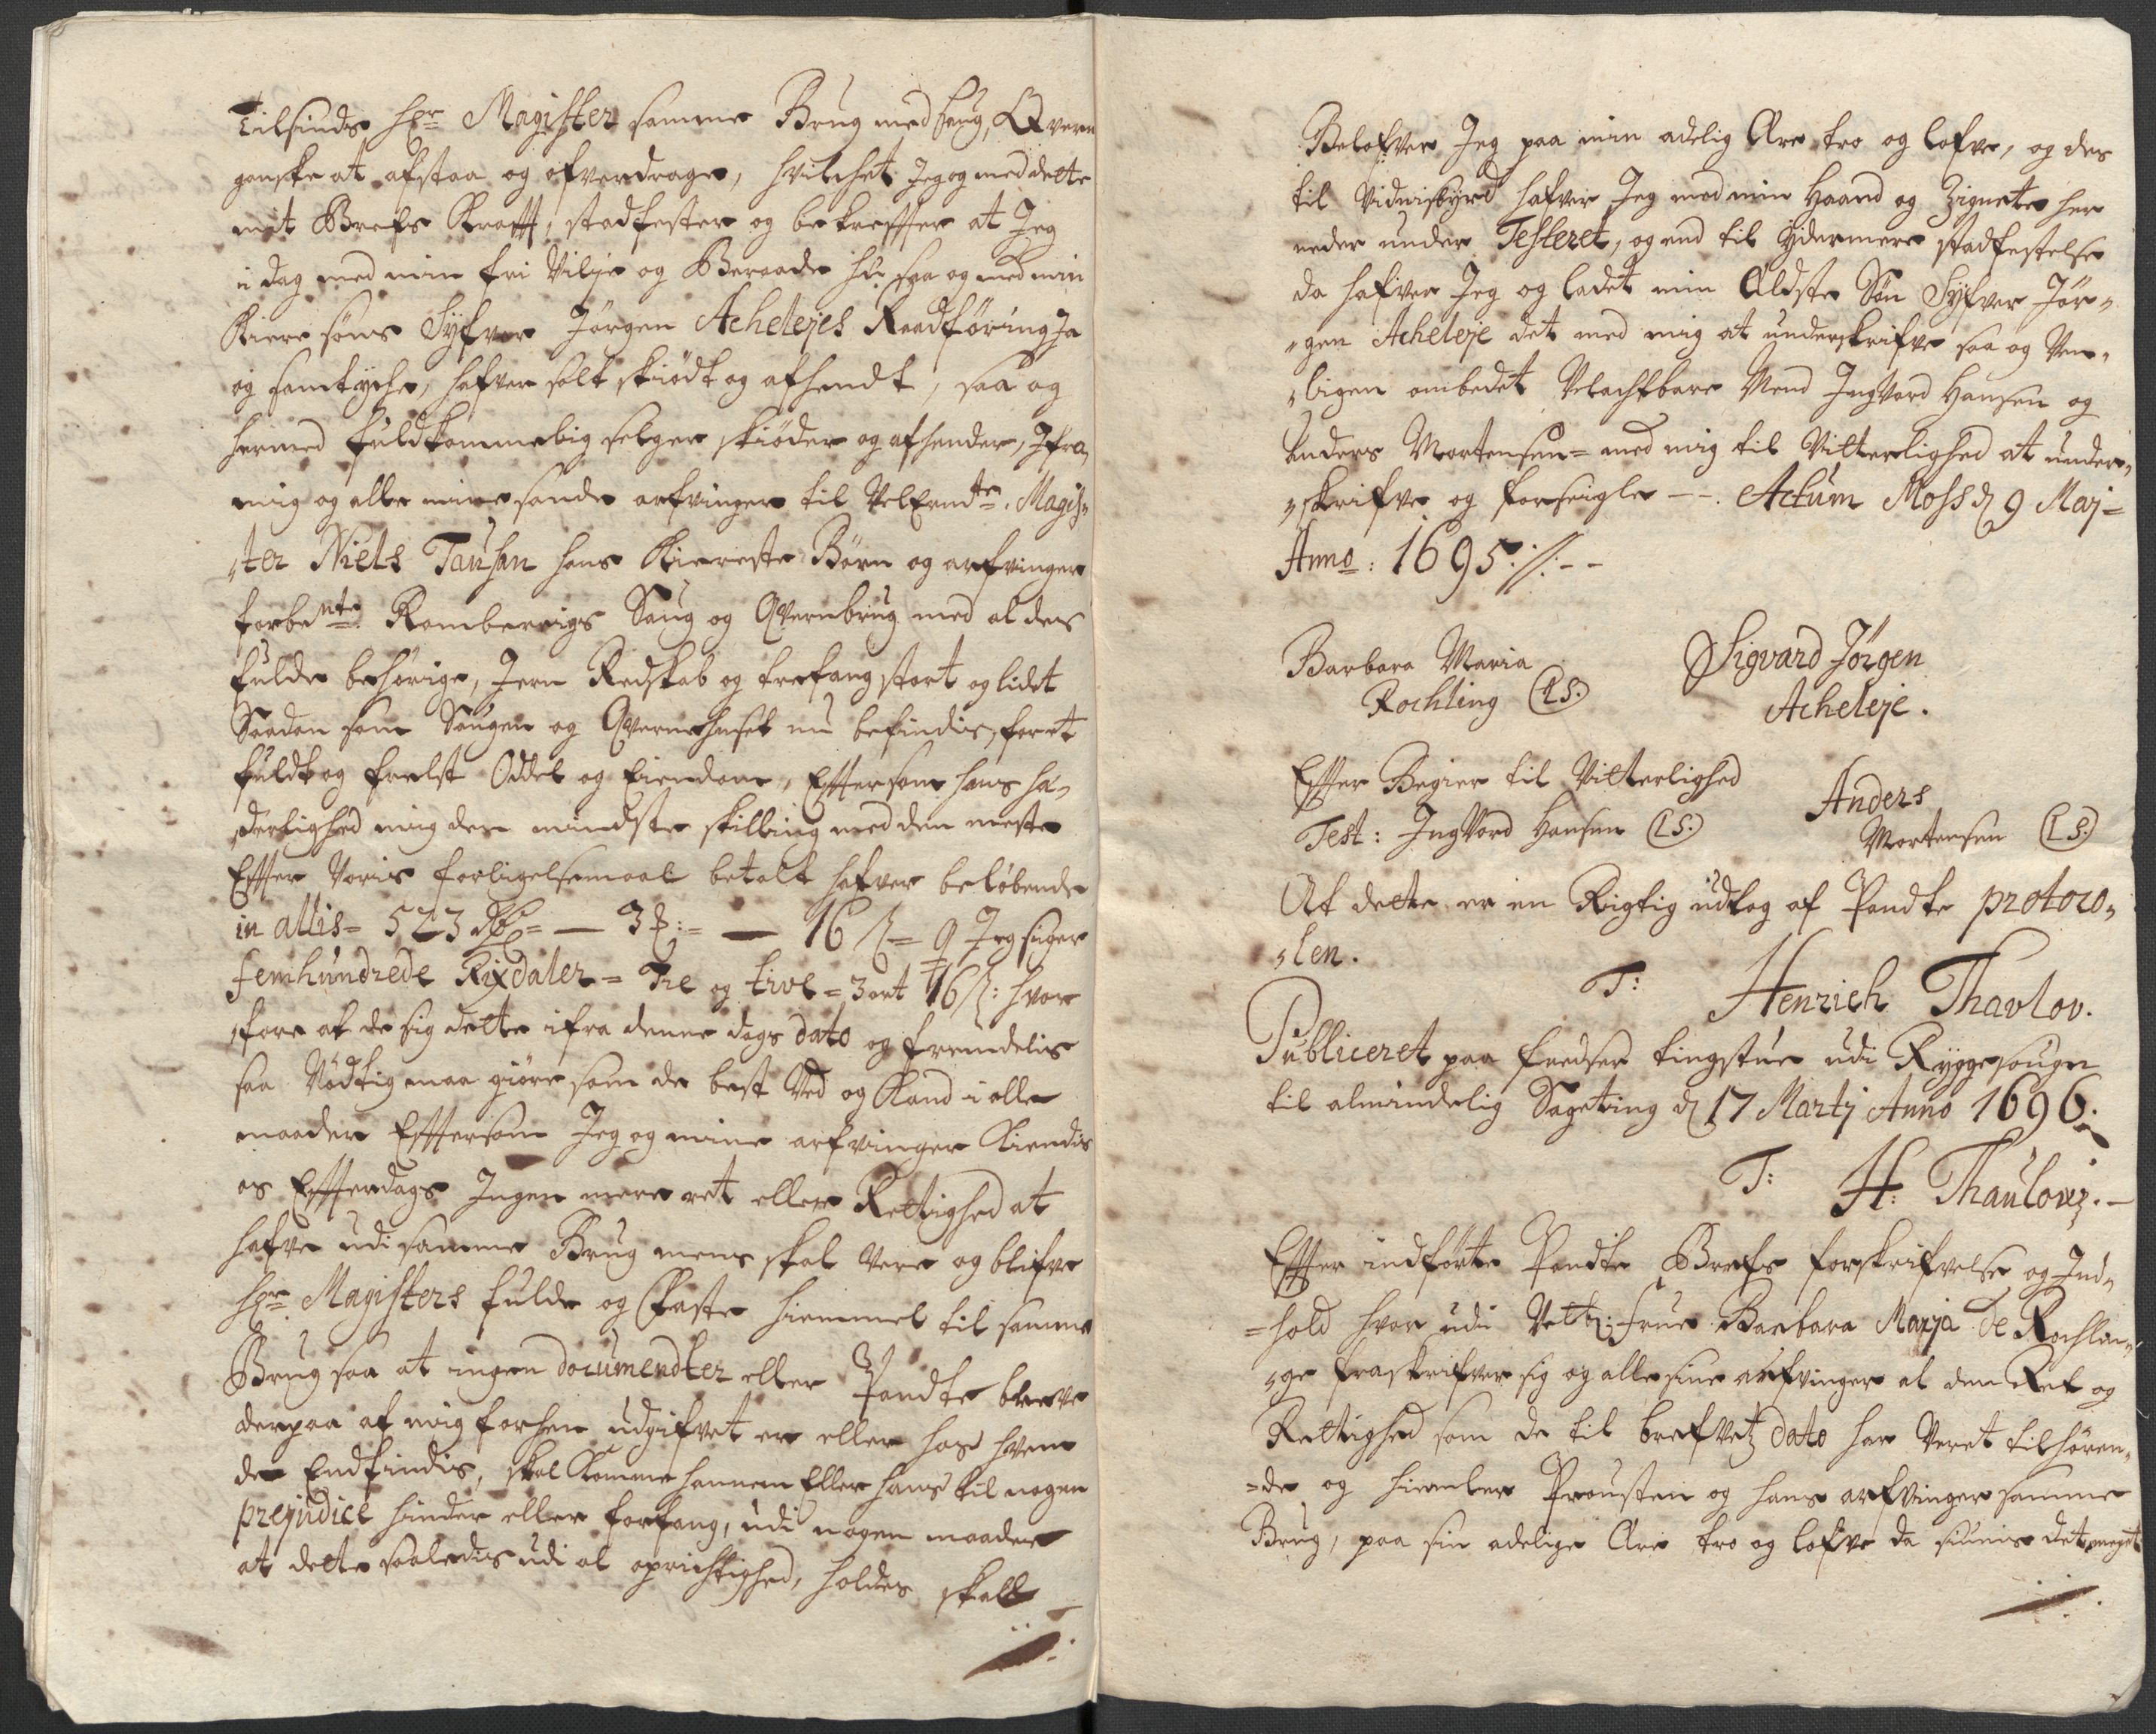 Tilsinds hr Magister samme Brug med Saug, Qvern
ganske at afstaa og ofverdrage, hvilchet Jeg og med dette
mit Brefs Krafft, stadfester og bekreffter at Jeg
i dag med min fri Vilje og Beraade hu saa og med min
Kiere søns Syfver Jørgen Achelejes Raadføring Ja
og samtyche, hafver solt skiødt og afhendt, saa og
hermed fuldkommelig selger skiøder og afhender, Ifra
mig og alle mine sande arfvinger til Velernde. Magis„
„ter Niels Tausan hans Kiereste Børn og arfvinger
forbente Rambergigs Saug og Qvernbrug med al des
fulde behørige, Jern Redskab og trefang stort og lidet
Saadan som Saugen og Qvernehuset nu befindis, for et
fuldt og frelst Oddel og Eiendom, Efftersom hans hæ„
derlighed mig den mindste skilling med den meste
Effter Voris forligelsemaal betalt hafver beløbende
in allis= 523 Rdr= — 3 ₰:= — 16 β= 9 Jeg siger
femhundrede Rixdaler= Tre og tive= 3 ort 16 β: hvor
fore at de sig dette ifra denne dags dato og fremdelis
saa Nødtig maa giøre som de best Ved og Kand i alle
maader Efftersom Jeg og mine arfvinger Kiendis
os Effterdags Ingen mere ret eller Rettighed at
hafve udi samme Brug mens skal Vere og blifve
hr Magisters fulde og faste hiemmel til samme
Brug saa at ingen documendter eller Pandte breve
derpaa af mig forhen udgifvet er eller hos hvem
de Endfindis, skal Komme hannem Eller hans til nogen
prejudice hinder eller forfang, udi nogen maader
at dette saaledis udi al oprichtighed, holdes skall
Belofver Jeg paa min adelig Ære tro og lofve, og des
til Vidnisbyrd hafver Jeg med min Haand og Zignete her
neder under Testeret, og end til ydermere stadfestelse
da hafver Jeg og ladet min Ældste Søn Syfver Jør„
„gen Acheleje det med mig at underskrifve saa og Ven„
„ligen ombedet Velachtbare Mend Ingvord Hansen og
Anders Mortensen= med mig til Vitterlighed at under„
„skrifve og forseigle --. Actum Moss d 9 Maj=
Anno: 1695 ./. --
Barbara Maria
Rochling (L S.)
Sigvard Jørgen
Acheleje.
Effter Begier til Vitterlighed
Test: Ingvord Hansen (L S.)
Anders
Mortensen (L S.)
At dette er en Rigtig udtog af Pandte protoco„
„len.
T: Henrich Thavlov.
Publiceret paa fuedser tingstue udi Rygge sougn
til almindelig Sageting d 17 Martj Anno 1696.
T: H: Thaulovz.-
Effter indførte Pandte Brefs forskrifvelse og Ind„
=hold hvor udi Velb: frue Barbara Marja de Rochlin„
„ge fraskrifver sig og alle sine arfvinger al den Ret og
Rettighed som de til brefvetz dato har Veret tilhøren„
=de og hiemler Prousten og hans arfvinger samme
Brug, paa sin adelige Ære tro og lofve da siunis det meget